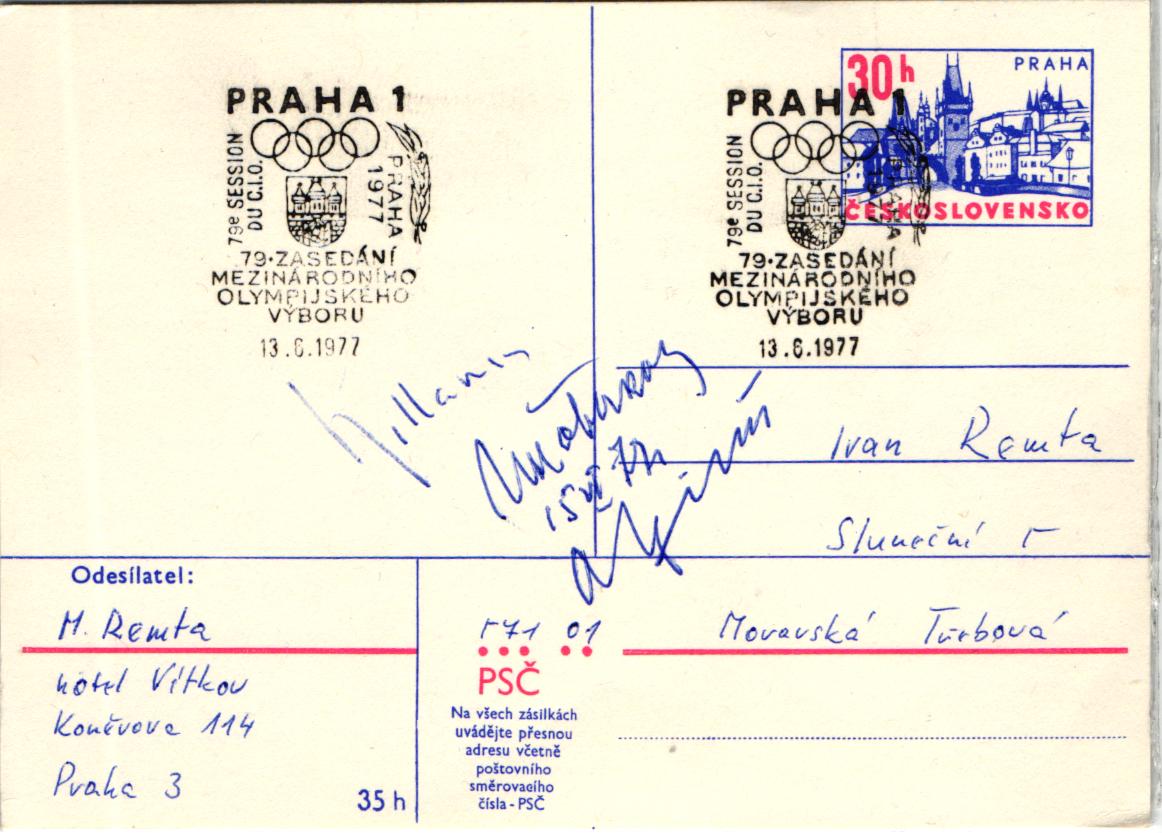 PRAHA 1
79e SESSION
DU C.I.O.
PRAHA
1977
79. ZASEDÁNÍ
MEZINÁRODNÍHO
OLYMPIJSKÉHO
VÝBORU
13.6.1977
30h
PRAHA
ČESKOSLOVENSKO
PRAHA 1
79e SESSION
DU C.I.O.
PRAHA
1977
79. ZASEDÁNÍ
MEZINÁRODNÍHO
OLYMPIJSKÉHO
VÝBORU
13.6.1977
Ivan Remta
Sluneční 5
571 01 Moravská Třebová
Odesílatel:
M. Remta
hotel Vítkov
Koněvova 114
Praha 3
35 h
PSČ
Na všech zásilkách
uvádějte přesnou
adresu včetně
poštovního
směrovacího
čísla - PSČ